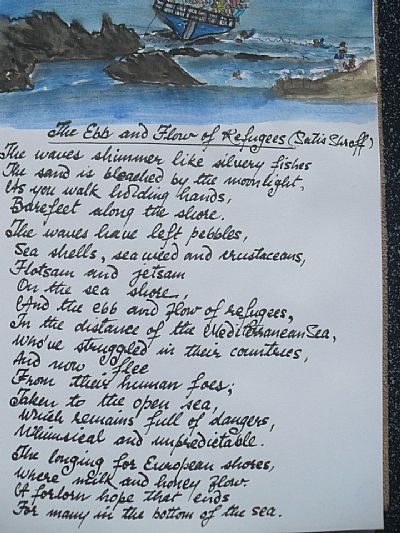 The Ebb and Flow of Refugees (Satis Shroff)
The waves shimmer like silvery fishes
The sand is bleached by the moonlight,
As you walk holding hands,
Barefeet along the shore.
The waves have left pebbles,
Sea shells, seaweed and crustaceans,
Flotsam and jetsam
On the sea shore,
And the ebb and flow of refugees,
In the distance of the Mediterranean Sea,
Who've struggled in their countries,
And now flee
From their human foes;
Taken to the open sea,
Which remains full of dangers,
Whimsical and unpredictable.
The longing for European shores,
Where milk and honey flow.
A forlorn hope that ends
For many in the bottom of the sea.